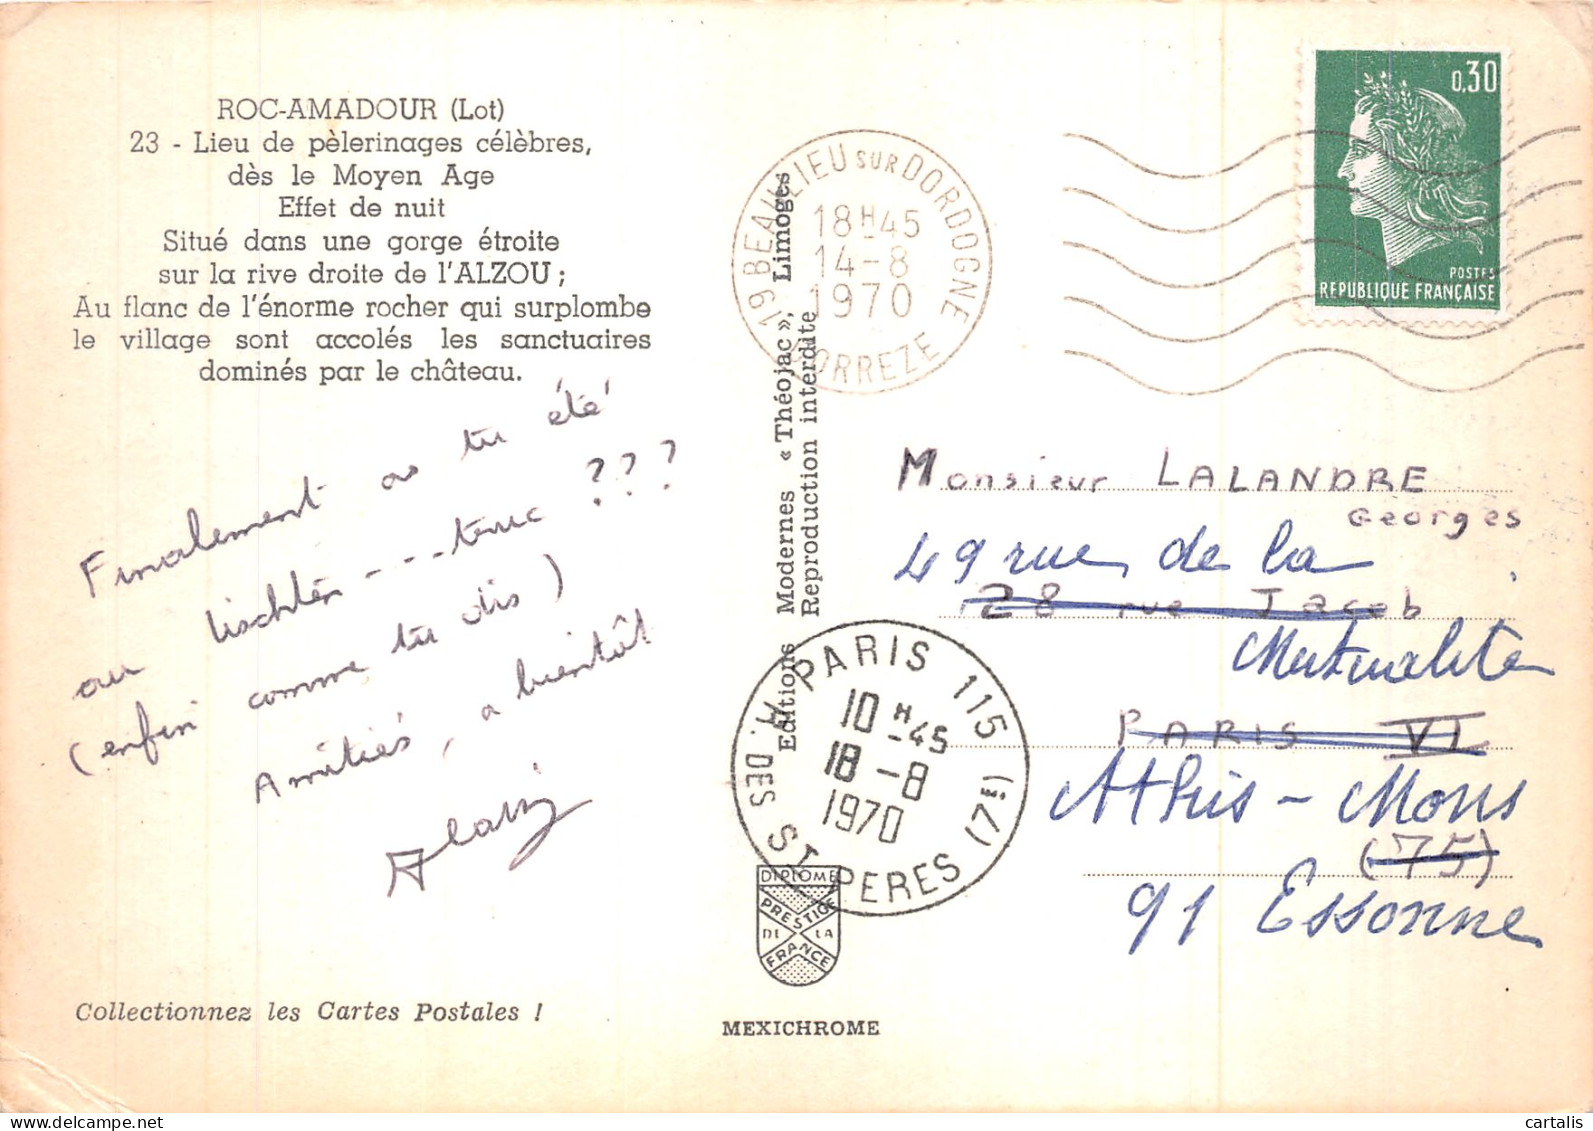 ROC-AMADOUR (Lot)
23 - Lieu de pèlerinages célèbres,
dès le Moyen Age
Effet de nuit
Situé dans une gorge étroite
sur la rive droite de l'ALZOU ;
Au flanc de l'énorme rocher qui surplombe
le village sont accolés les sanctuaires
dominés par le château.
Finalement as tu été
au ---- ???
(enfin comme tu dis)
Amitiés, a bientôt
Collectionnez les Cartes Postales !
Editions Modernes « Théojac », Limoges
Reproduction interdite
DIPLOME
PRESTIGE
DE LA
FRANCE
MEXICHROME
19 BEAULIEU SUR DORDOGNE
18H45
14-8
1970
CORREZE
0,30
POSTES
REPUBLIQUE FRANÇAISE
Monsieur LALANDRE
Georges
49 rue de la
28 rue Jacob
Mutualité
PARIS VI
Athis-Mons
(75)
91 Essonne
PARIS 115 (7E)
10H45
18-8
1970
R. DES STS PERES
cartalis
www.delcampe.net